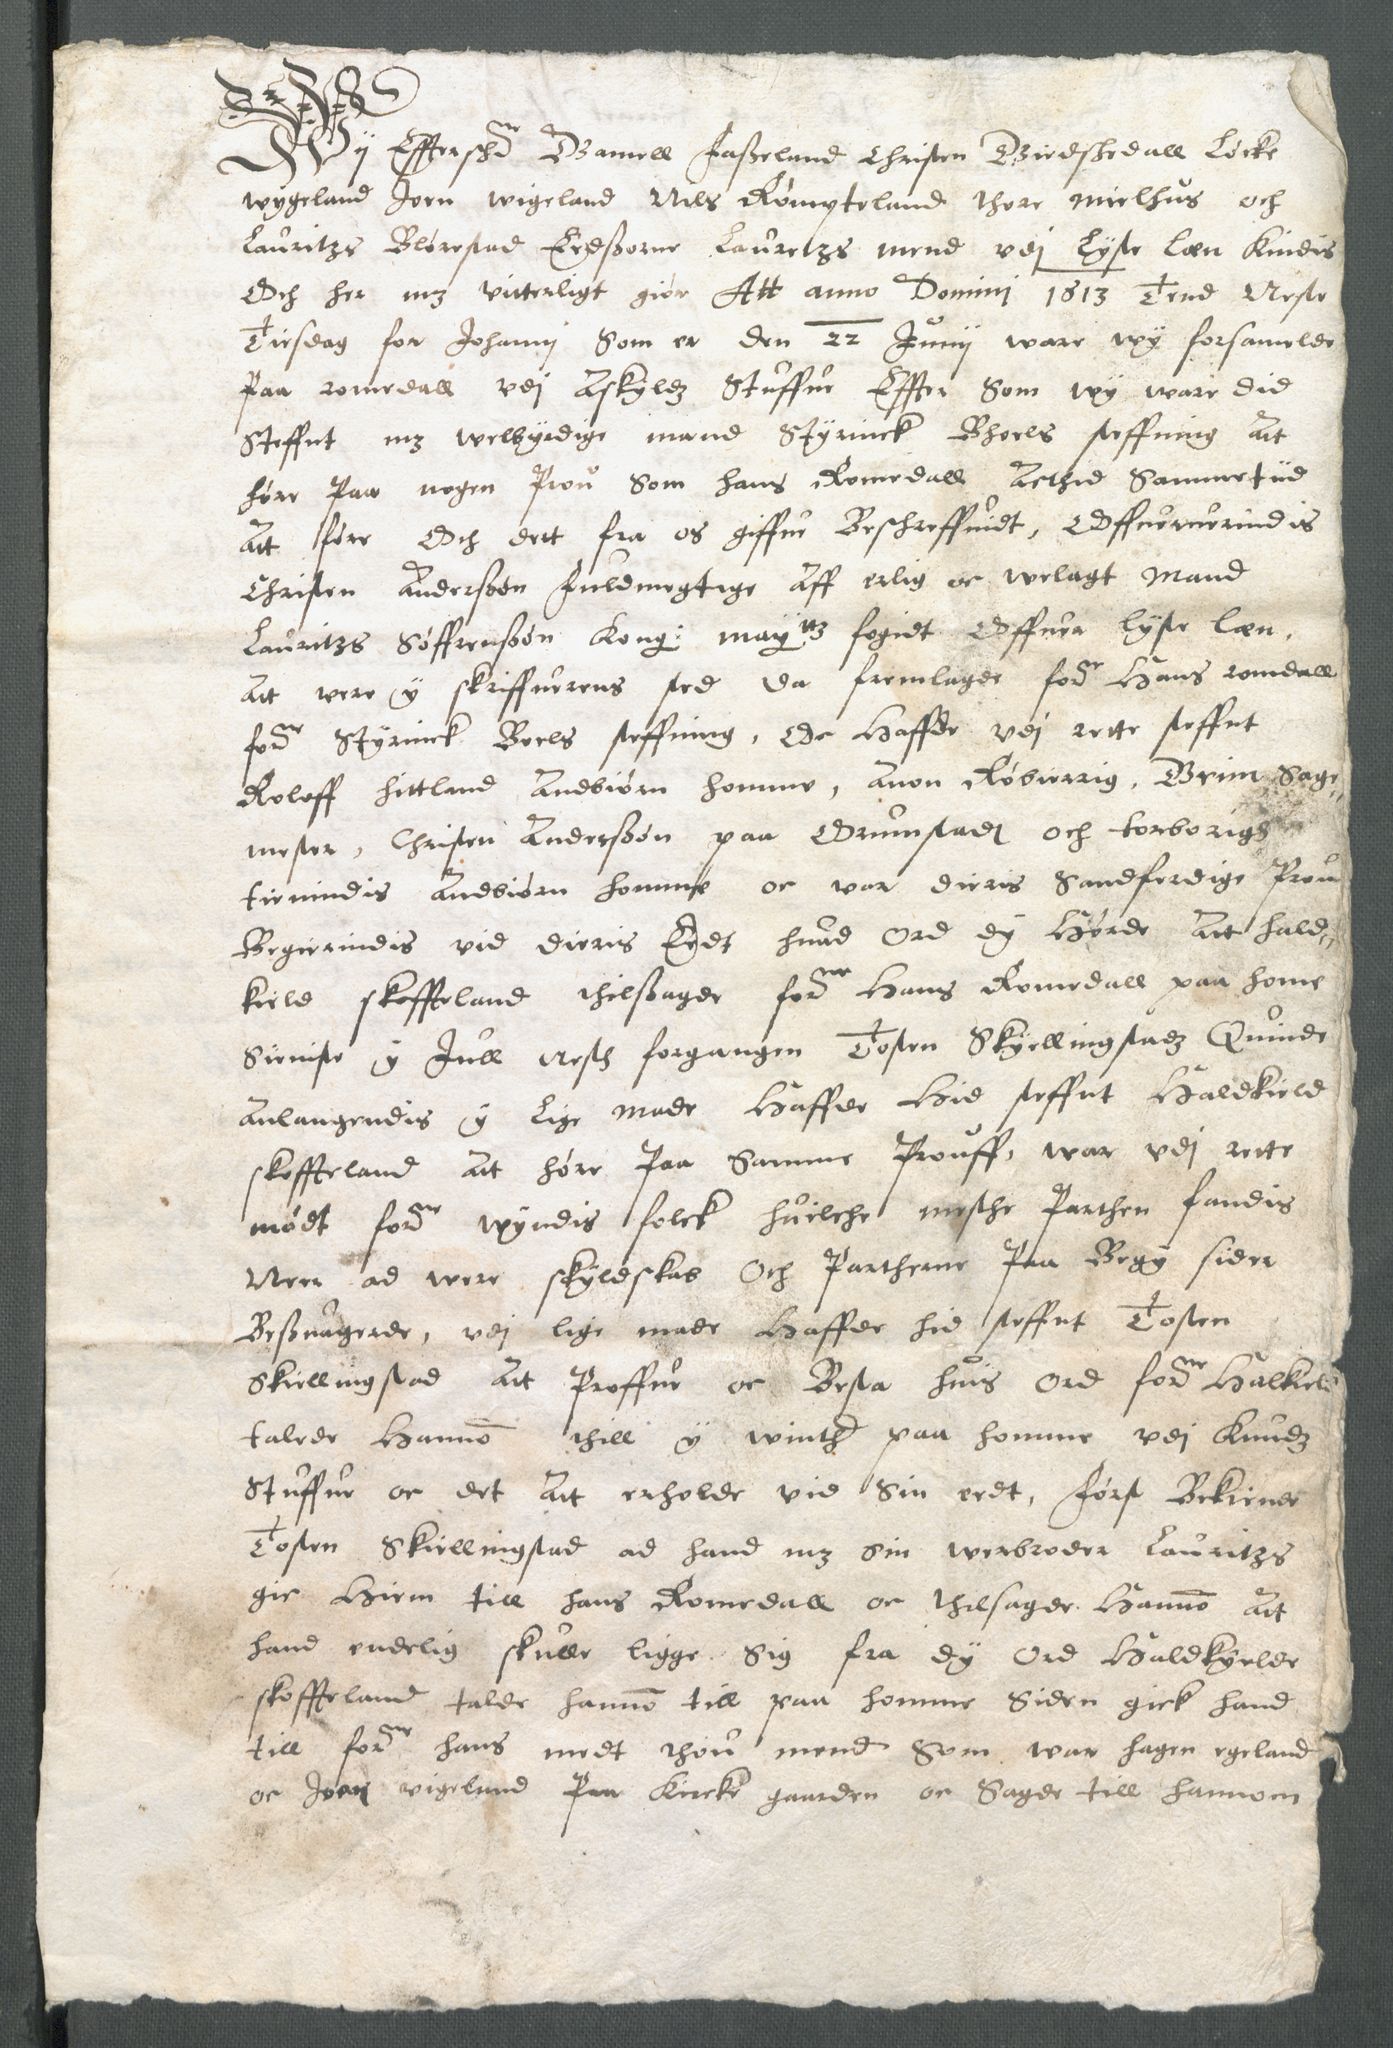 Wij Effterschrne Gamell Faßeland Christen Birdshedall Løcke
wygeland Joen wigeland Nils Rømyteland thore mielhus och
Lauritzs Blørestad Eedßorne Lauretzs mend vdj Lyste Len Kiendis
Och her mz vitterligt giør Att anno Dominj 1613 Tend Neste
Tirsdag for Johannj som er den 22 Junij ware wy forsamelde
Paa romedall vdj Askyldz Stuffue Effter Som wy ware did
Steffnt mz welbyrdige mand Styrinck Bhoels steffning Att
høre Paa nogen Prou som hans Romedall Acthed Sammetiid
Att føre Och dett fra os giffue Beschreffuidt, Offueruerindis
Christen Anderßøn Fuldmegtige Aff erlig oc welagt Mand
Lauritzs Søffrenßøn Kong: may:ttz fogidt Offuer lyste len,
Att were y skriffuerens sted da fremlagde forne Hans romdall
forne Styrinck Boels steffning, Oc Haffde vdj rette steffnt
Roleff hittland Andbiørn homme, Anon Røbierrig, Brim Sage,,
mester, Christen Anderßøn paa Grumstadz och torborigh
tienindis Andbiørn homme oc war dieris Sandferdige Prou
Begierindis vid dieris Eedt huad Ord dy Hørde Att hald,,
kield skoffteland thilßagde forne Hans Romedall paa home
Sieniste y Jull nesth forgangen Tosten Skyellingstadz Quinde
Anlangendis y Lige Made Haffde Hid steffnt Haldkield
skoffteland Att høre Paa Samme Prouff, war vdj rette
mødt forne wyndis folck huilche mesthe Parthen fandis
Neer ad were skyldskab Och Partherne Paa Begy sider
Beßuagrede, vdj lige made Haffde hid steffnt Tosten
Skiellingstad Att Proffue oc Besta huis Ord forne Halkield
talede Hannom thill y winther paa homme vdj Knudz
Stuffue oc det Att erholde vid Sin eedt, først Bekiende
Tosten Skiellingstad ad hand mz Sin werbroder Lauritzs
gic Hiem till hans Romedall oc thilsagde Hannom Att
hand endelig skulle ligge Sig fra dy Ord Haldkyelde
skoffteland talde hannom till paa homme Siden gick hand
till forne hans medt thou mend Som war hagen egeland
oc Joen vigeland Paa Kircke gaarden oc Sagde till hannom